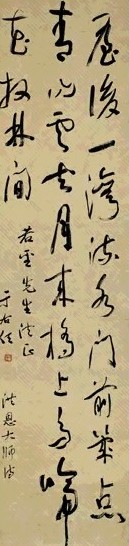 屋後一灣流水門前幾點
青山雲去月來橋上鳥啼
花放林間
若雲先生法正
洪恩大師詩
于右任